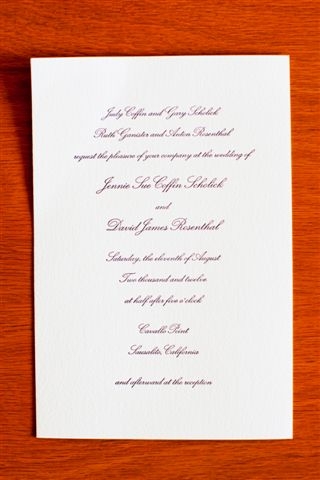 Judy Coffin and Gary Scholick
Ruth Ganister and Anton Rosenthal
request the pleasure of your company at the wedding of
Jennie Sue Coffin Scholick
and
David James Rosenthal
Saturday, the eleventh of August
Two thousand and twelve
at half after five o'clock
Cavallo Point
Sausalito, California
and afterward at the reception